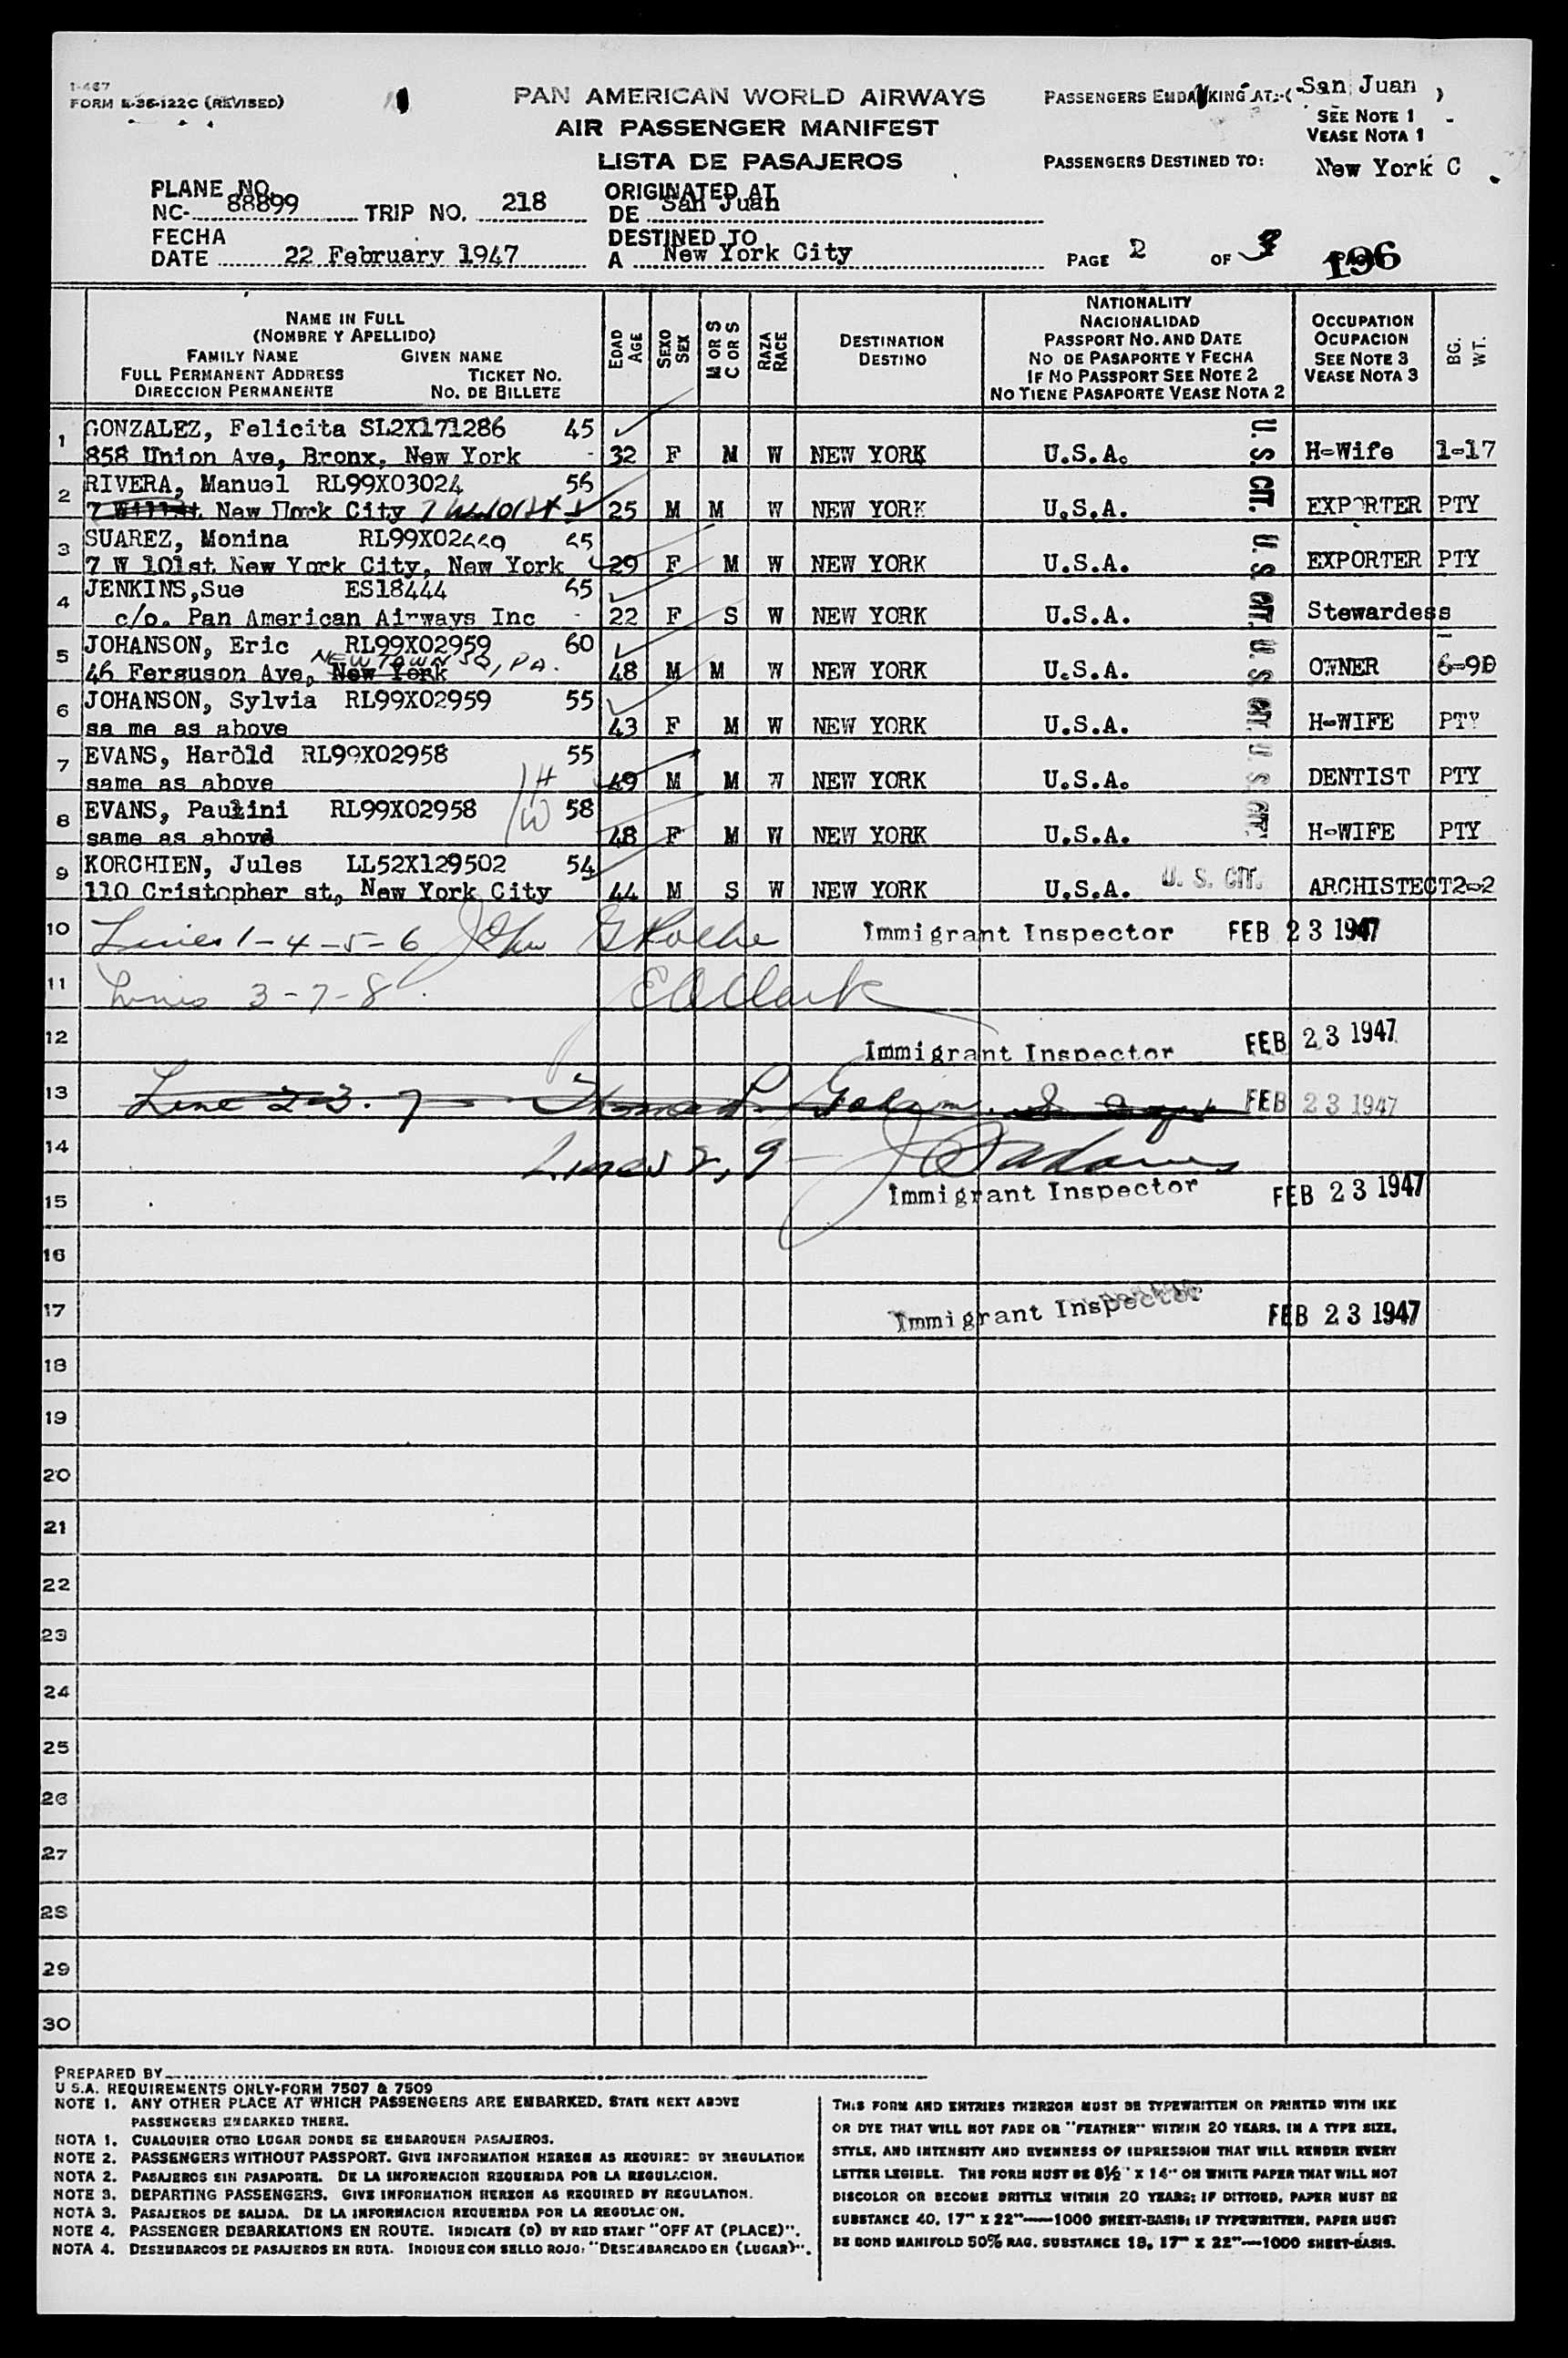 1-467
FORM E-36-122C (REVISED)
PAN AMERICAN WORLD AIRWAYS
AIR PASSENGER MANIFEST
LISTA DE PASAJEROS
PASSENGERS EMBARKING AT:-( San Juan )
SEE NOTE 1
VEASE NOTA 1
PASSENGERS DESTINED TO: New York C
PLANE NO.
NC- 88899 TRIP NO. 218
ORIGINATED AT
DE San Juan
FECHA
DATE 22 February 1947
DESTINED TO
A New York City
PAGE 2 OF
196
NAME IN FULL
(NOMBRE Y APELLIDO)
FAMILY NAME GIVEN NAME
FULL PERMANENT ADDRESS TICKET NO.
DIRECCION PERMANENTE NO. DE BILLETE
EDAD AGE
SEXO SEX
M OR S C OR S
RAZA RACE
DESTINATION
DESTINO
NATIONALITY
NACIONALIDAD
PASSPORT NO. AND DATE
NO DE PASAPORTE Y FECHA
IF NO PASSPORT SEE NOTE 2
NO TIENE PASAPORTE VEASE NOTA 2
OCCUPATION
OCUPACION
SEE NOTE 3
VEASE NOTA 3
BG. WT.
1 GONZALEZ, Felicita SL2X171286 45
858 Union Ave, Bronx, New York 32 F M W NEW YORK U.S.A. U. S. CIT. H-Wife 1-17
2 RIVERA, Manuel RL99X03024 56
New York City 7 W 101st 25 M M W NEW YORK U.S.A. EXPORTER PTY
3 SUAREZ, Monina
7 W 101st New York City, New York 29 F M W NEW YORK U.S.A. U. S. CIT. EXPORTER PTY
4 JENKINS,Sue ES18444 65
c/o. Pan American Airways Inc 22 F S W NEW YORK U.S.A. Stewardess
5 JOHANSON, Eric RL99X02959 60
NEWTOWN SQ, PA.
46 Ferguson Ave, New York 48 M M W NEW YORK U.S.A. U. S. CIT. OWNER
6 JOHANSON, Sylvia RL99X02959 55
sa me as above 43 F M W NEW YORK U.S.A. H-WIFE PTY
7 EVANS, Harold RL99X02958 55
same as above H 49 M M W NEW YORK U.S.A. U. S. CIT. DENTIST PTY
8 EVANS, Paulini RL99X02958 58
same as above W 48 F M W NEW YORK U.S.A. H-WIFE PTY
9 KORCHIEN, Jules LL52X129502 54
110 Cristopher st, New York City 44 M S W NEW YORK U.S.A. U. S. CIT. ARCHISTECT 2-2
10 Lines 1-4-5-6 John G Roche Immigrant Inspector FEB 23 1947
11 Lines 3-7-8 E A Clark
12 Immigrant Inspector FEB 23 1947
13 Line 2-3. 7 FEB 23 1947
14 Lines 2, 9 Adams
15 Immigrant Inspector FEB 23 1947
16
17 Immigrant Inspector FEB 23 1947
18
19
20
21
22
23
24
25
26
27
28
29
30
PREPARED BY
U.S.A. REQUIREMENTS ONLY-FORM 7507 & 7509
NOTE 1. ANY OTHER PLACE AT WHICH PASSENGERS ARE EMBARKED. STATE NEXT ABOVE
PASSENGERS EMBARKED THERE.
NOTA 1. CUALQUIER OTRO LUGAR DONDE SE EMBARQUEN PASAJEROS.
NOTE 2. PASSENGERS WITHOUT PASSPORT. GIVE INFORMATION HEREON AS REQUIRED BY REGULATION
NOTA 2. PASAJEROS SIN PASAPORTE. DE LA INFORMACION REQUERIDA POR LA REGULACION.
NOTE 3. DEPARTING PASSENGERS. GIVE INFORMATION HEREON AS REQUIRED BY REGULATION.
NOTA 3. PASAJEROS DE SALIDA. DE LA INFORMACION REQUERIDA POR LA REGULACION.
NOTE 4. PASSENGER DEBARKATIONS EN ROUTE. INDICATE (D) BY RED STAMP "OFF AT (PLACE)".
NOTA 4. DESEMBARCOS DE PASAJEROS EN RUTA. INDIQUE CON SELLO ROJO: "DESEMBARCADO EN (LUGAR)".
THIS FORM AND ENTRIES THEREON MUST BE TYPEWRITTEN OR PRINTED WITH INK
OR DYE THAT WILL NOT FADE OR "FEATHER" WITHIN 20 YEARS. IN A TYPE SIZE,
STYLE, AND INTENSITY AND EVENNESS OF IMPRESSION THAT WILL RENDER EVERY
LETTER LEGIBLE. THE FORM MUST BE 8½" X 14" ON WHITE PAPER THAT WILL NOT
DISCOLOR OR BECOME BRITTLE WITHIN 20 YEARS; IF DITTOED, PAPER MUST BE
SUBSTANCE 40, 17" X 22"—1000 SHEET-BASIS; IF TYPEWRITTEN, PAPER MUST
BE BOND MANIFOLD 50% RAG, SUBSTANCE 18, 17" X 22"—1000 SHEET-BASIS.